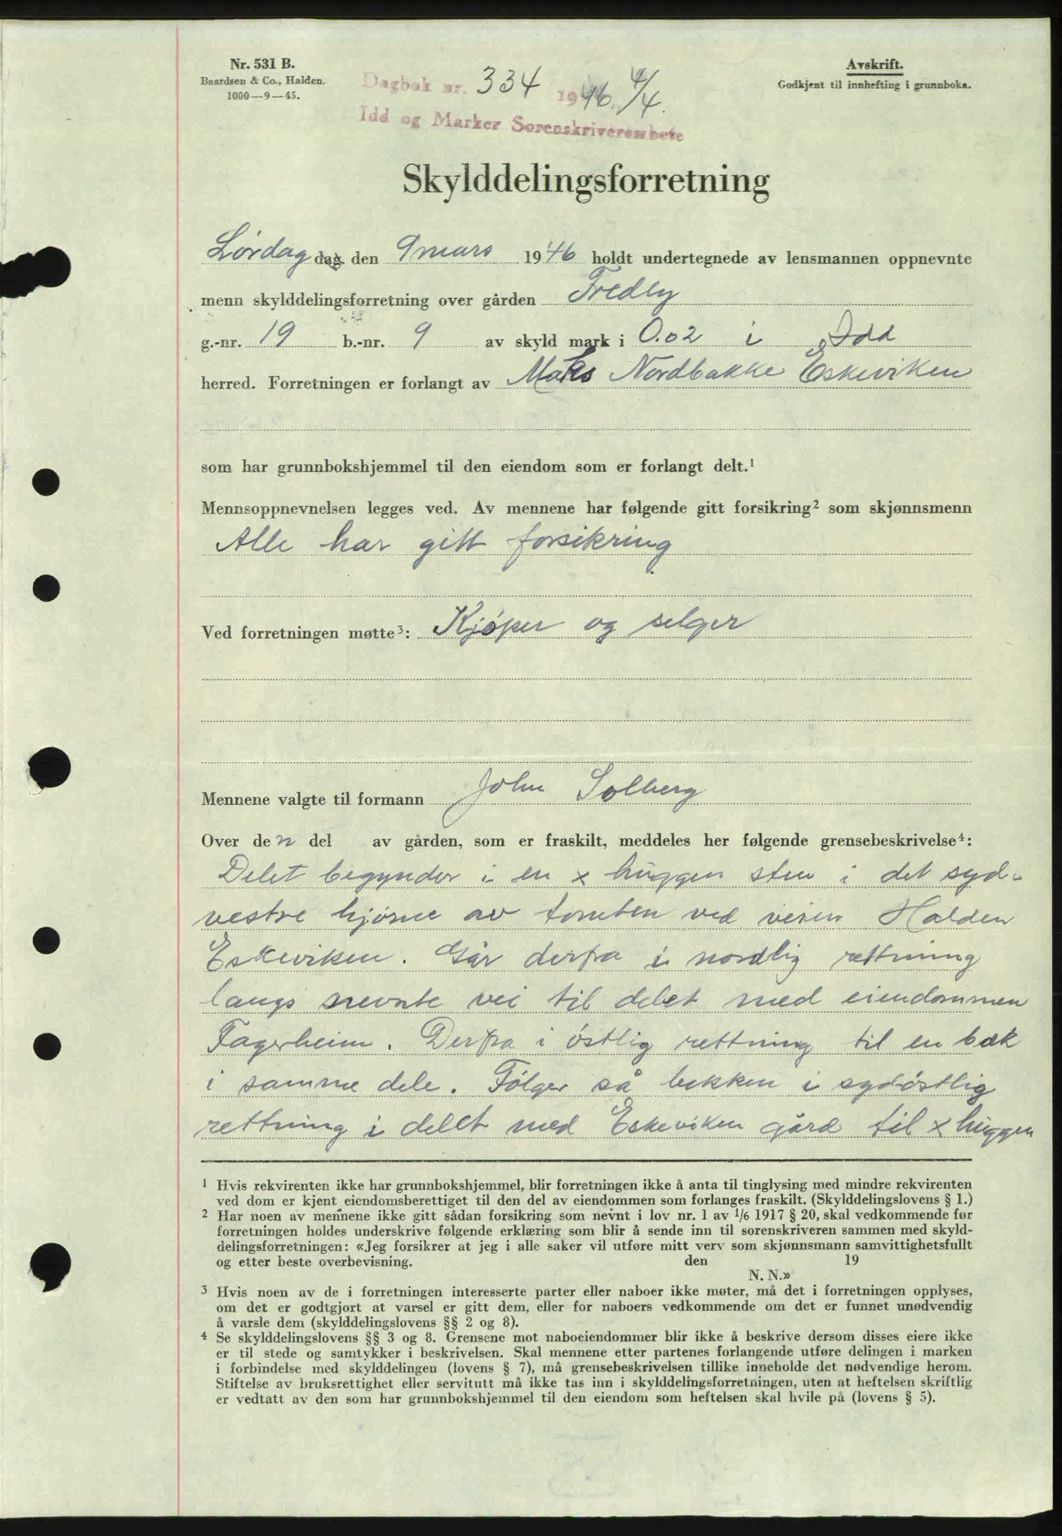 Nr. 531 B.
Baardsen & Co., Halden.
1000—9—45.
Avskrift.
Godkjent til innhefting i grunnboka.
Dagbok nr. 334 1946. 4/4.
Idd og Marker Sorenskriverembete
Skylddelingsforretning
Lørdag dag den 9 mars 1946 holdt undertegnede av lensmannen oppnevnte
menn skylddelingsforretning over gården Fredly
g.-nr. 19 b.-nr. 9 av skyld mark i 0.02 i Idd
herred. Forretningen er forlangt av Maks Nordbakke Eskeviken
som har grunnbokshjemmel til den eiendom som er forlangt delt.¹
Mennsoppnevnelsen legges ved. Av mennene har følgende gitt forsikring² som skjønnsmenn
Alle har gitt forsikring
Ved forretningen møtte³: Kjøper og selger
Mennene valgte til formann John Solberg
Over den del av gården, som er fraskilt, meddeles her følgende grensebeskrivelse⁴:
Delet begynder i en x huggen sten i det syd-
vestre hjørne av tomten ved veien Halden
Eskeviken. Går derfra i nordlig rettning
langs nevnte vei til delet med eiendommen
Fagerheim. Derfra i østlig rettning til en bæk
i samme dele. Følger så bekken i sydøstlig
rettning i delet med Eskeviken gård til x huggen
¹ Hvis rekvirenten ikke har grunnbokshjemmel, blir forretningen ikke å anta til tinglysing med mindre rekvirenten
ved dom er kjent eiendomsberettiget til den del av eiendommen som forlanges fraskilt. (Skylddelingslovens § 1.)
² Har noen av mennene ikke gitt sådan forsikring som nevnt i lov nr. 1 av 1/6 1917 § 20, skal vedkommende før
forretningen holdes underskrive følgende erklæring som blir å sende inn til sorenskriveren sammen med skyld-
delingsforretningen: «Jeg forsikrer at jeg i alle saker vil utføre mitt verv som skjønnsmann samvittighetsfullt
og etter beste overbevisning. den 19
N. N.»
³ Hvis noen av de i forretningen interesserte parter eller naboer ikke møter, må det i forretningen opplyses,
om det er godtgjort at varsel er gitt dem, eller for naboers vedkommende om det er funnet unødvendig
å varsle dem (skylddelingslovens §§ 2 og 8).
⁴ Se skylddelingslovens §§ 3 og 8. Grensene mot naboeiendommer blir ikke å beskrive dersom disses eiere ikke
er til stede og samtykker i beskrivelsen. Skal mennene etter partenes forlangende utføre delingen i marken
i forbindelse med skylddelingen (lovens § 7), må grensebeskrivelsen tillike inneholde det nødvendige herom.
Stiftelse av bruksrettighet eller servitutt må ikke tas inn i skylddelingsforretningen, uten at heftelsen skriftlig
er vedtatt av den som har grunnbokshjemmel til den eiendom som heftelsen skal hvile på (lovens § 5).